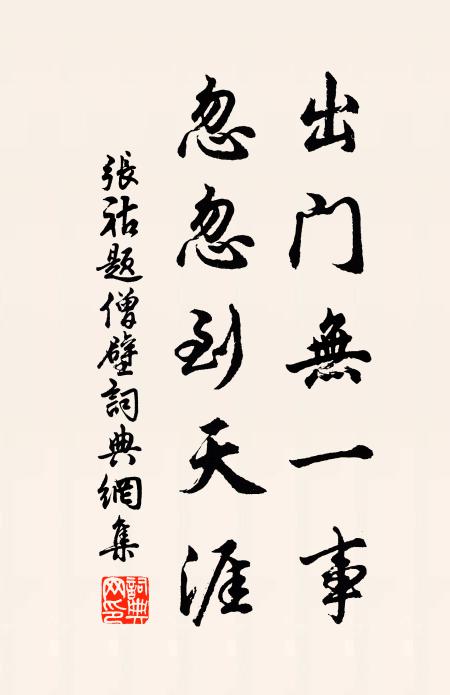 出門無一事
忽忽到天涯
張祜題僧壁詞典網集
詞典網印